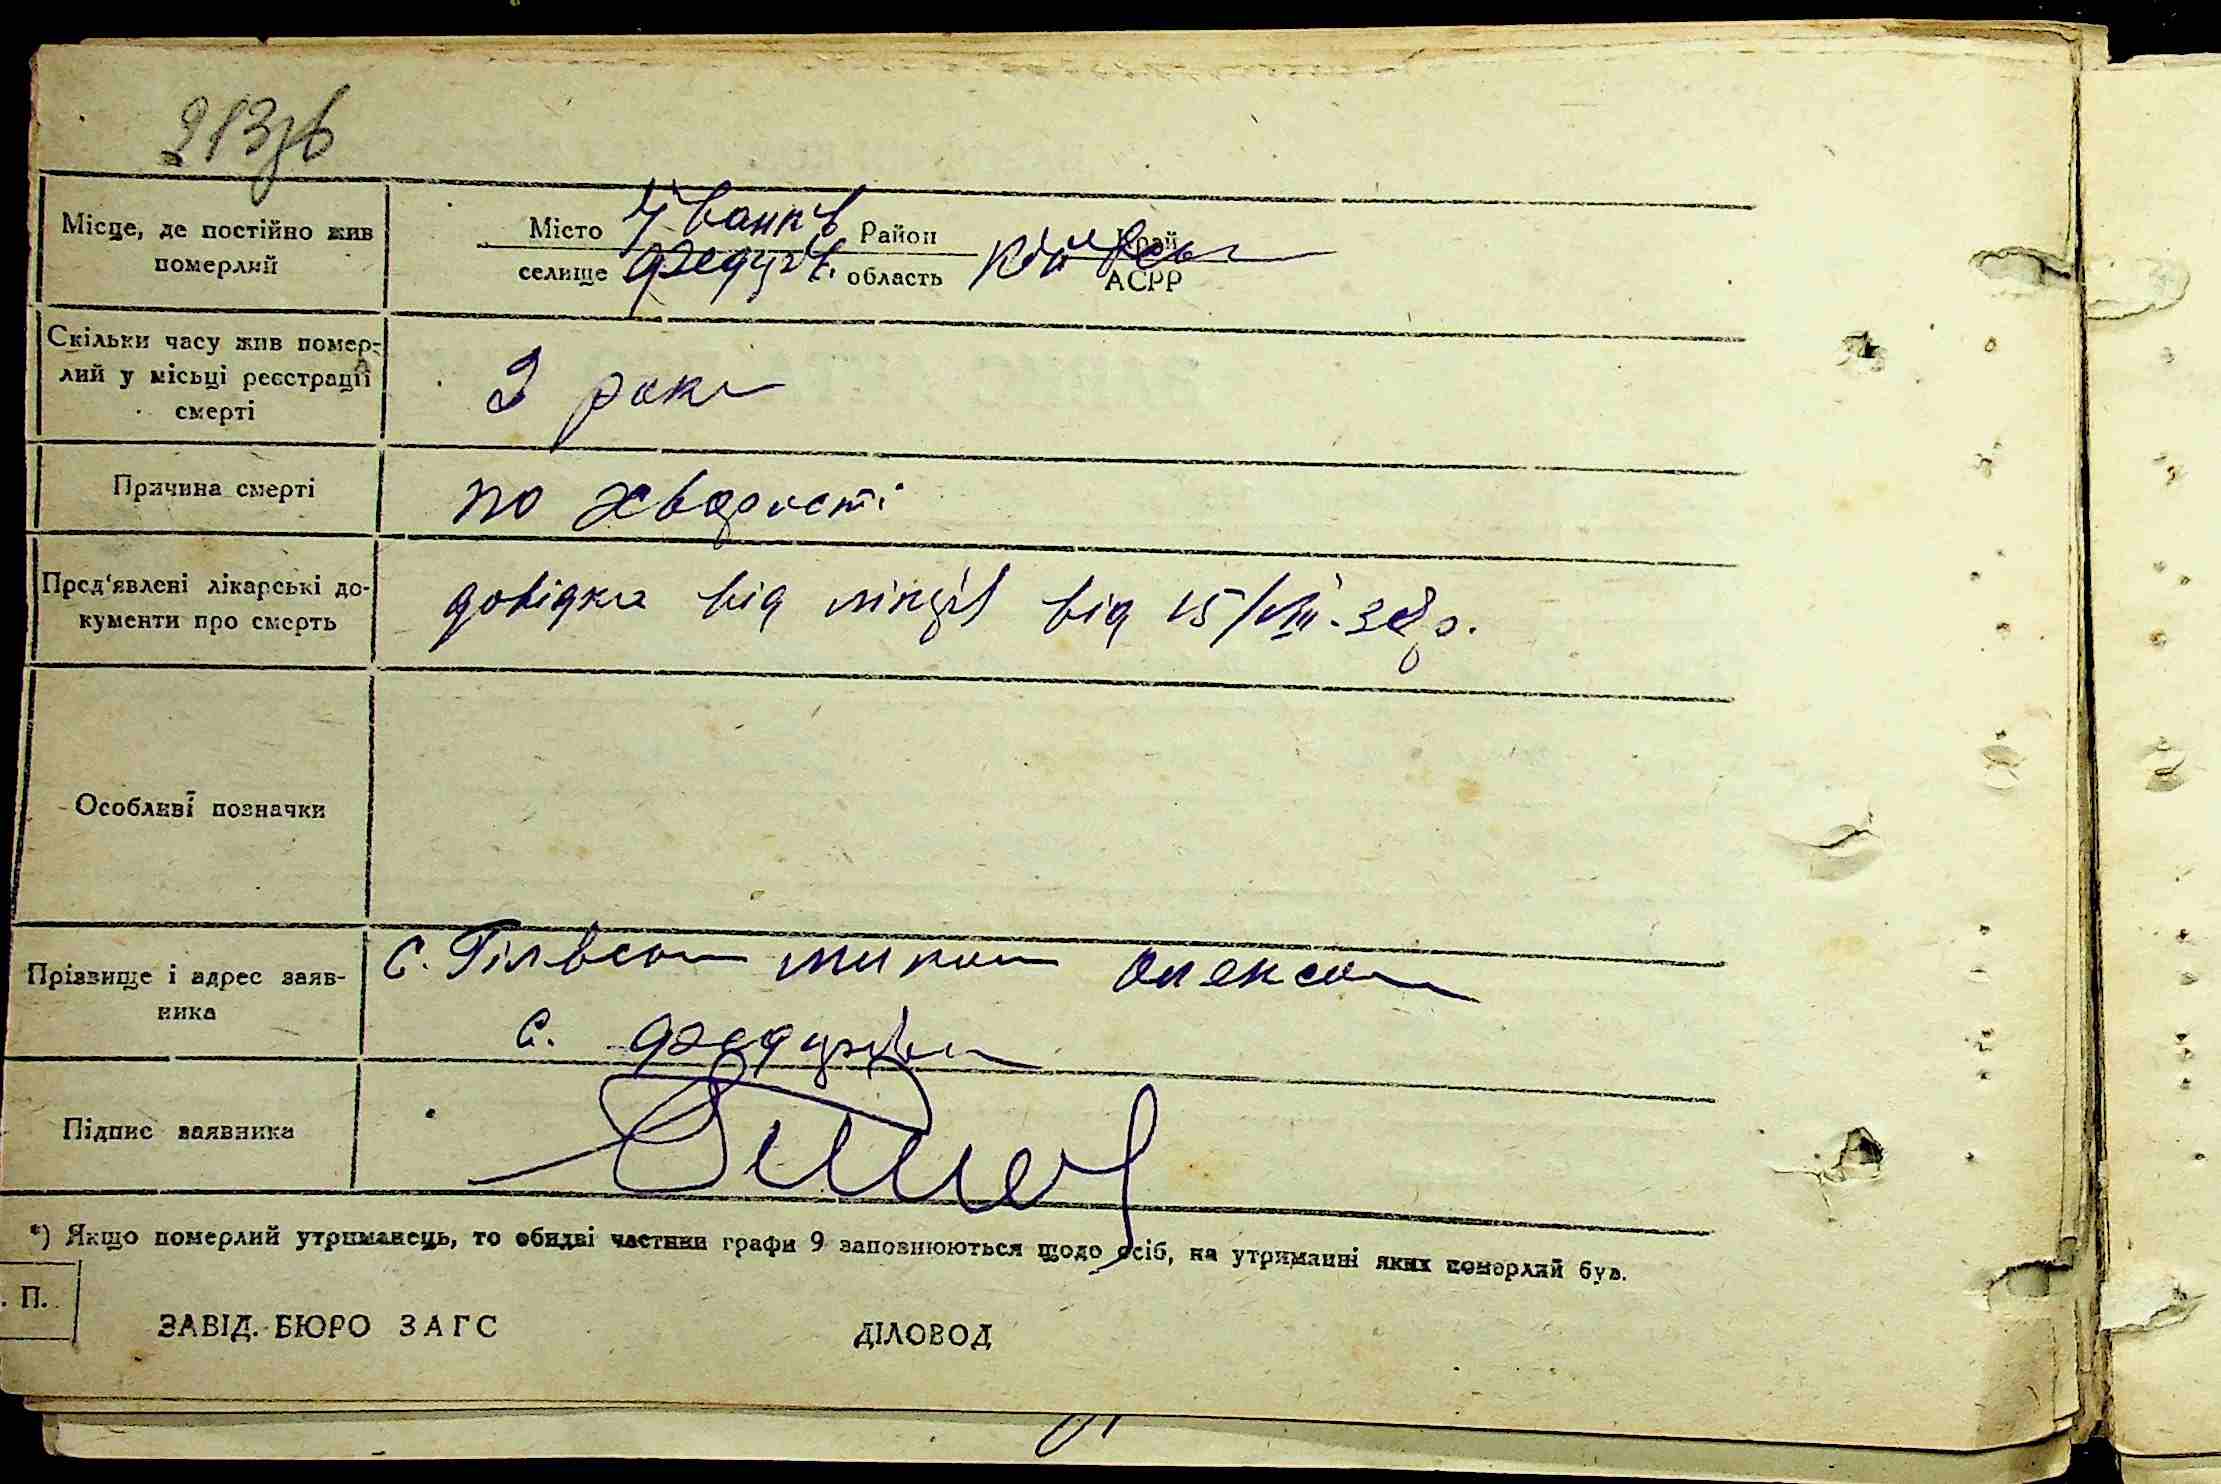 213зв
Місце, де постійно жив
померлий
Місто Іванків Район Край
селище область Київськ АСРР
Скільки часу жив помер-
лий у місці реєстрації
смерті
2 роки
Причина смерті
по хворості
Пред'явлені лікарські до-
кументи про смерть
довідка від від 15/VIII-38р.
Особливі позначки
Прізвище і адрес заяв-
ника
с.
с.
Підпис заявника
*) Якщо померлий утриманець, то обидві частини графи 9 заповнюються щодо осіб, на утриманні яких померлий був.
. П.
ЗАВІД. БЮРО ЗАГС ДІЛОВОД